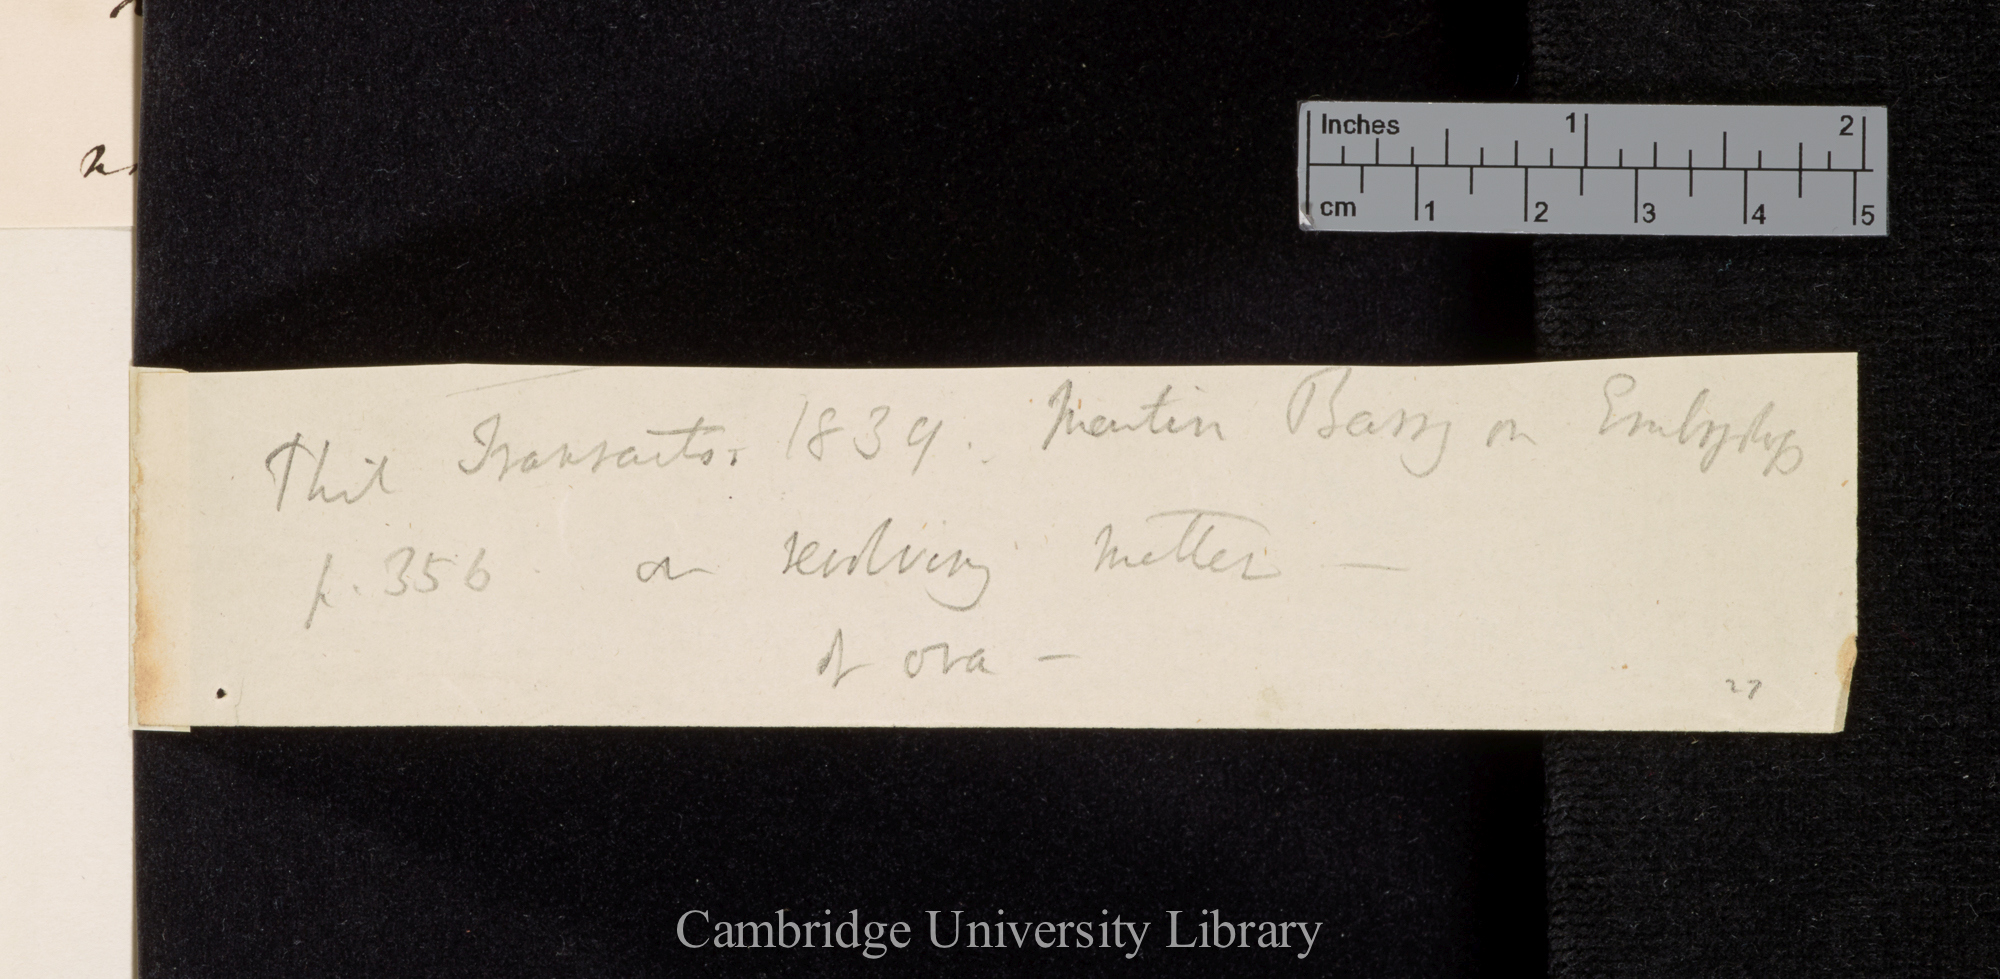 Inches 1 2
cm 1 2 3 4 5
Phil Transacts. 1839. Martin Barry on Embryology
p. 356 on revolving matter —
of ova —
27
Cambridge University Library